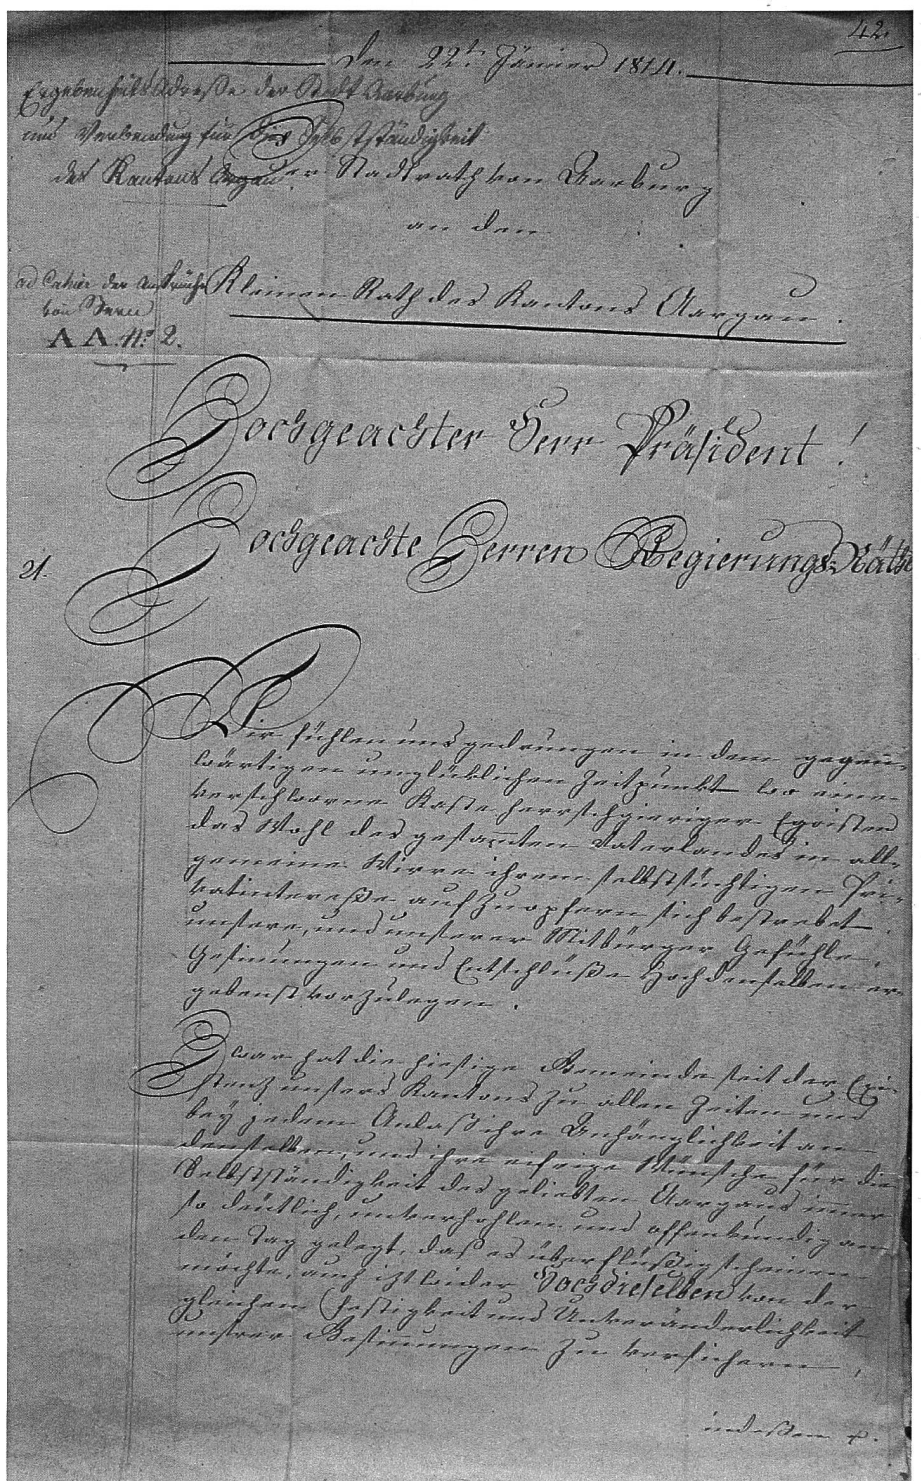 42.
Den 22.t Jänner 1814.
Ergebenheits Adresse der Stadt Aarburg
und Verwendung für die Selbstständigkeit
des Kantons Argau.
Der Stadtrath von Aarburg
an den
Kleinen Rath des Kantons Aargau.
ad Cahier der Ansprüche
von Bern
A A. N.º 2.
Hochgeachter Herr Präsident!
Hochgeachte Herren Regierungs-Räthe
21.
Wir fühlen uns gedrungen in dem gegen-
wärtigen unglüklichen Zeitpunkt wo eine
verschworne Kaste herrschgieriger Egoisten
das Wohl des gesam̅ten Vaterlandes in all-
gemeine Wirre ihrem selbstsüchtigen Pri-
vatinteresse aufzuopfern sich bestrebet,
unsere, und unserer Mitbürger Gefühle,
Gesinnungen und Entschlüße Hochdenselben er-
gebenst vorzulegen.
Zwar hat die hiesige Gemeinde seit der Exi-
stenz unsers Kantons zu allen Zeiten und
bey jedem Anlaß ihre Anhänglichkeit an
denselben, und ihre eifrige Wünsche für die
Selbstständigkeit des geliebten Aargaus im̅er
so deutlich, unverhohlen und offenkundig an
den Tag gelegt, daß es überflüßig scheinen
möchte, auch izt wieder Hochdieselben von der
gleichen Festigkeit und Unveränderlichkeit
unsrer Gesinnungen zu versichern,
indessen